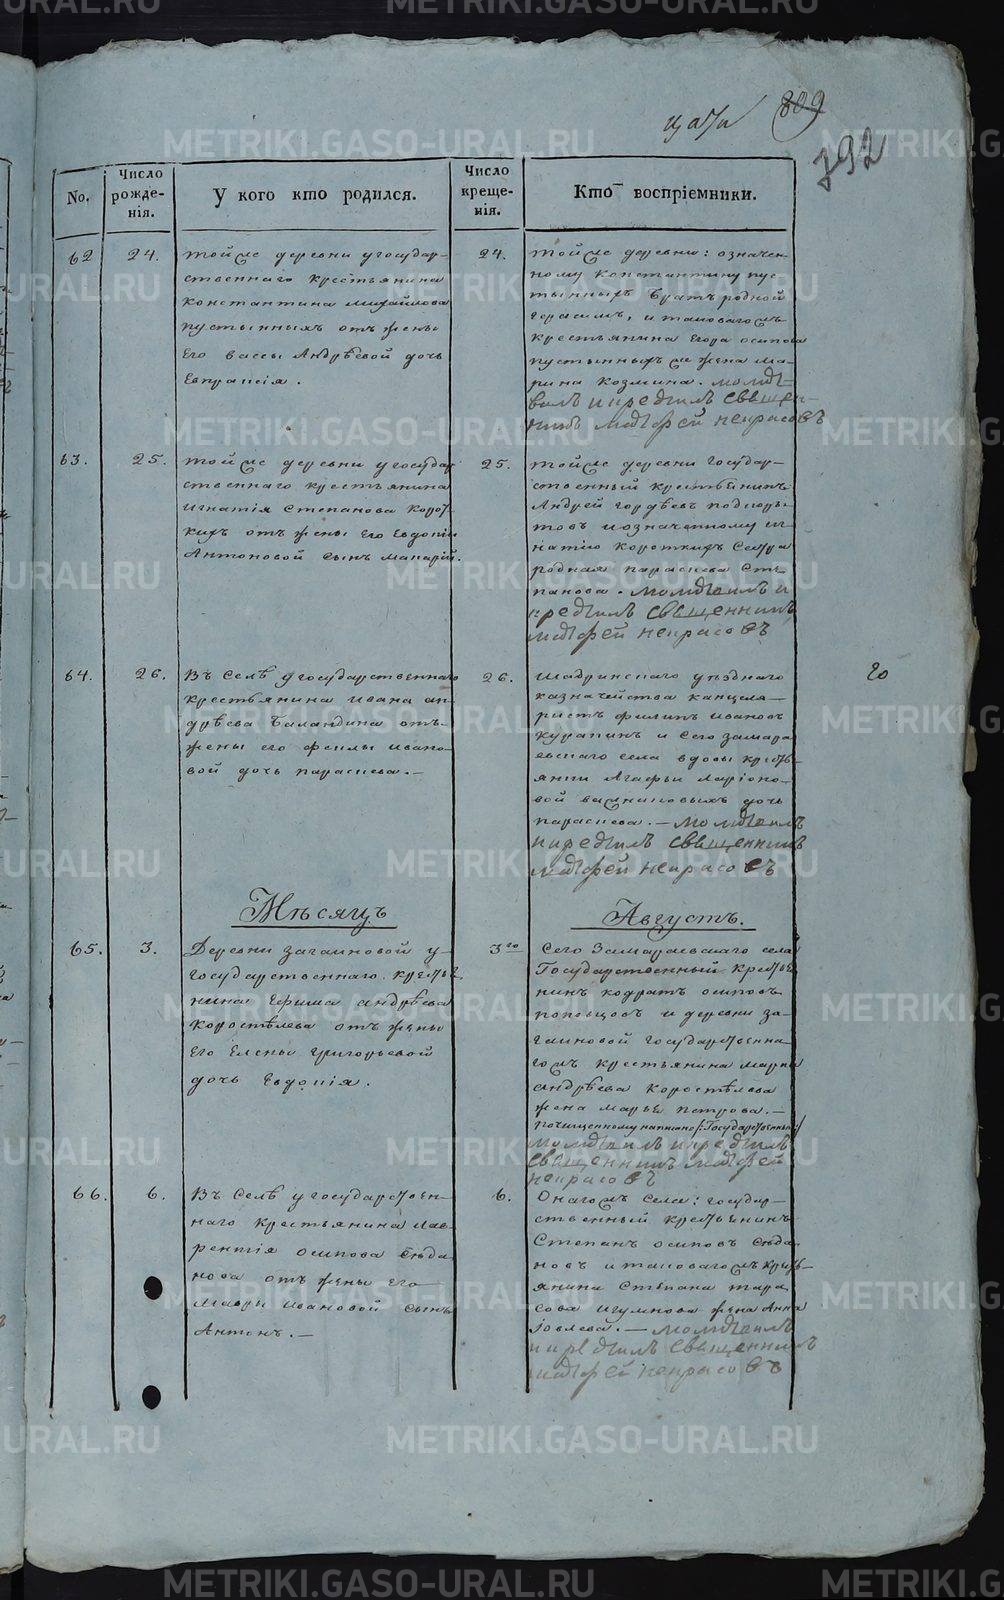 809
792
No.
Число рожде-нія.
У кого кто родился.
Число креще-нія.
Кто воспріемники.
62
24.
тойже деревни у государ-
ственнаго крестьянина
константина михайлова
пустынныхъ отъ жены
Его вассы Андрѣевой дочь
Евпраксія.
24.
тойже деревни: означен-
ному константину пус-
тынныхъ братъ родной
герасимъ, и таковагожъ
крестьянина Егора осипова
пустынныхъ же жена ма-
рина козмина. молит-
вилъ и крестилъ священ-
никъ матфей некрасовъ
63.
25.
тойже деревни у государ
ственнаго крестьянина
игнатія степанова корот
кихъ отъ жены его Евдокіи
Антоновой сынъ макарій.
25.
тойже деревни государ-
ственный крестьянинъ
Андрей гордѣевъ
и означенному иг-
натію короткихъ сестра
родная параскева сте-
панова. молитвилъ и
крестилъ священникъ
матфей некрасовъ
64.
26.
Въ Селѣ у государственнаго
крестьянина ивана ан-
дрѣева баландина отъ
жены его феклы ивано-
вой дочь параскева.—
26.
шадринскаго уѣзднаго
казначейства канцеля-
ристъ филипъ ивановъ
курапинъ и сего замара
евскаго села вдовы кресть-
янки Агафьи ларіоно-
вой дочь
параскева.— молитвилъ
и крестилъ священникъ
матфей некрасовъ
20
Мѣсяцъ
Августъ.
65.
3.
Деревни загаиновой у
государственнаго крестья
нина Ефима андрѣева
коростѣлева отъ жены
его Елены григорьевой
дочь Евдокія.
3го
Сего Замараевскаго села
Государственный крестья
нинъ кодратъ осиповъ
поповцовъ и деревни за-
гаиновой государственна-
гожъ крестьянина марка
андрѣева коростѣлева
жена марья петрова.—
почищенному написано: Государственный
молитвилъ и крестилъ
священникъ матфей
некрасовъ
66.
6.
Въ Селѣ у государствен-
наго крестьянина лав-
рентія осипова Сюда
нова отъ жены его
мавры ивановой сынъ
Антонъ.—
6.
Онагожъ села: государ-
ственный крестьянинъ
Степанъ осиповъ Сюда-
новъ и таковагожъ кресть-
янина степана тара
сова игумнова жена Анна
Іовлева.— молитвилъ
и крестилъ священникъ
матфей некрасовъ
METRIKI.GASO-URAL.RU